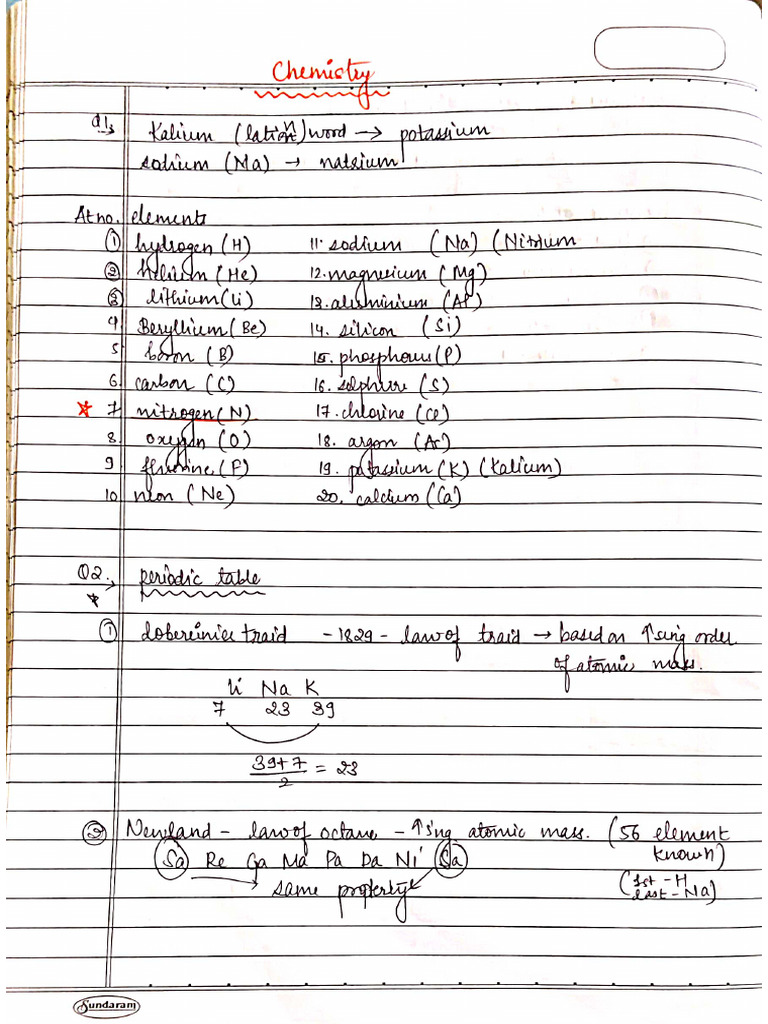 Chemistry
Q1→ Kalium (latin) word → potassium
sodium (Na) → natrium
At no. elements
① hydrogen (H) 11. sodium (Na) (Nitrium
② Helium (He) 12. magnesium (Mg)
③ lithium (Li) 13. aluminium (Al)
4 Beryllium (Be) 14. silicon (Si)
5 boron (B) 15. phosphorus (P)
6 carbon (C) 16. sulphure (S)
* 7 nitrogen (N) 17. chlorine (Cl)
8 oxygen (O) 18. argon (Ar)
9 fluorine (F) 19. potassium (K) (Kalium)
10 neon (Ne) 20. calcium (Ca)
Q2.→ periodic table
*
① dobereinice traid - 1829 - law of traid → based on ↑sing order
of atomic mass.
Li Na K
7 23 39
39+7
2 = 23
② Newland - law of octane - ↑sing atomic mass. (56 element
known)
Sa Re Ga Ma Pa Da Ni Sa
→ same property
(1st - H
last - Na)
Sundaram